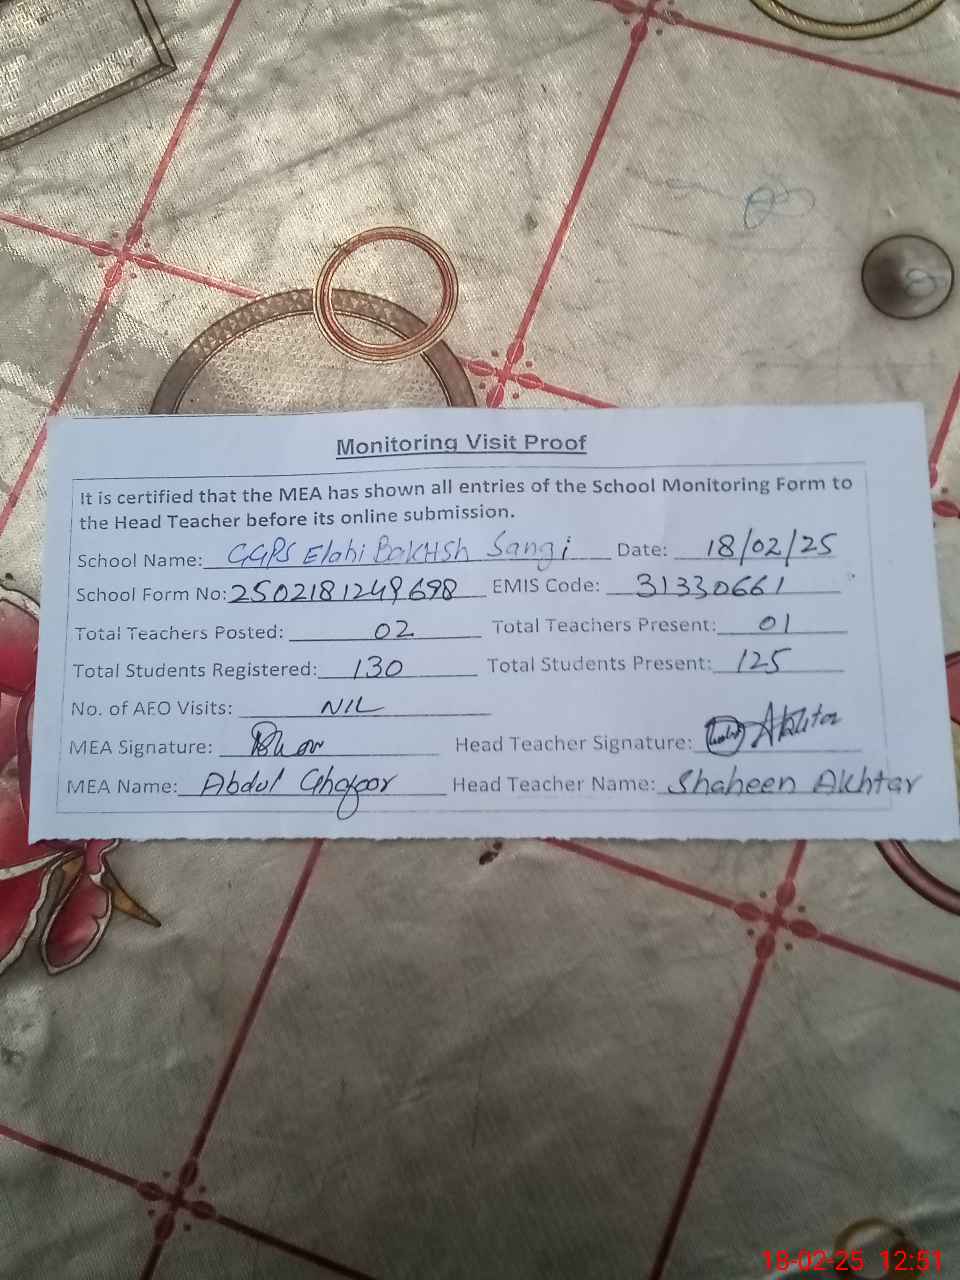 Monitoring Visit Proof
It is certified that the MEA has shown all entries of the School Monitoring Form to
the Head Teacher before its online submission.
School Name: GGPS Elahi BakHSh Sangi Date: 18/02/25
School Form No: 2502181249698 EMIS Code: 31330661
Total Teachers Posted: 02 Total Teachers Present: 01
Total Students Registered: 130 Total Students Present: 125
No. of AEO Visits: NIL
MEA Signature: Head Teacher Signature: Akhtar
MEA Name: Abdul Ghafoor Head Teacher Name: Shaheen Akhtar
18-02-25 12:51